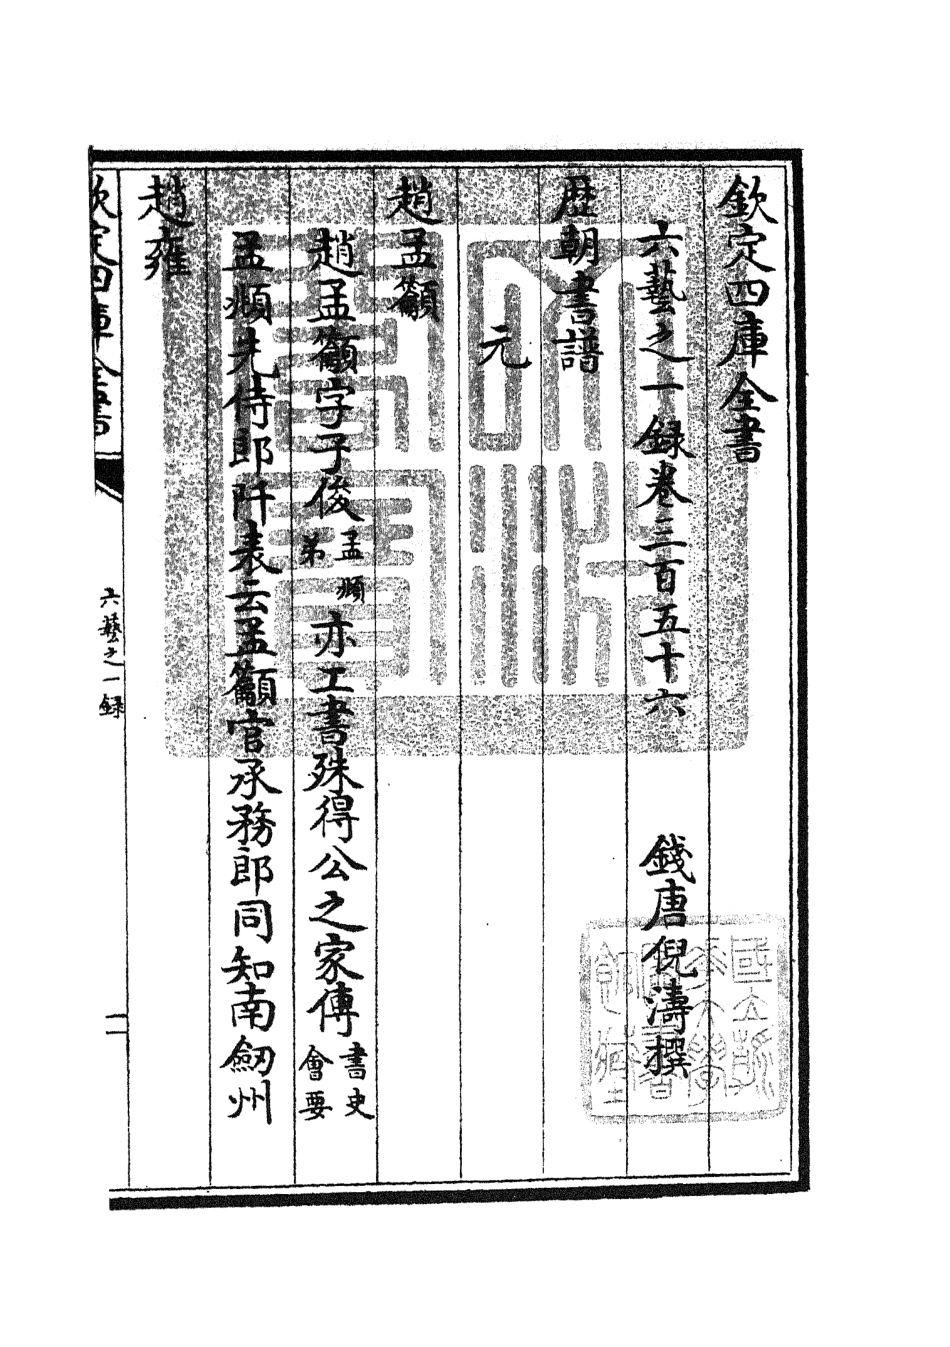 欽定四庫全書
六藝之一録卷三百五十六
錢唐倪濤撰
歴朝書譜
元
趙孟籲
趙孟籲字子俊孟頫弟亦工書殊得公之家傳書史會要
孟頫先侍郎阡表云孟籲官承務郎同知南劒州
趙雍
欽定四庫全書
六藝之一録
二